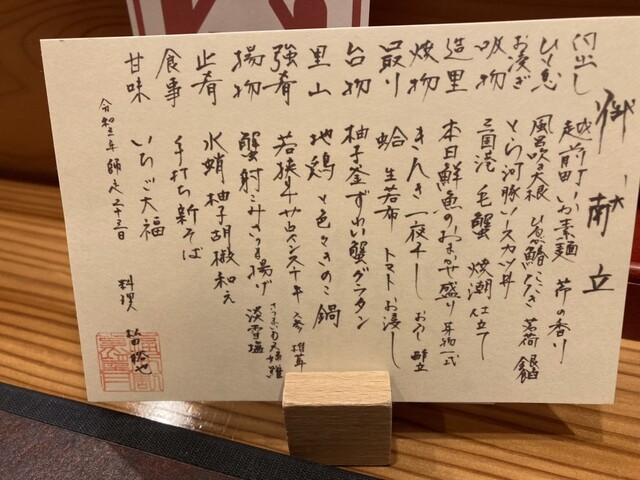 御献立
口出し 越前町いか素麺 芹の香り
ひと息 風呂吹き大根
お凌ぎ とらふ河豚ソースカツ丼
吸物 三国港 毛蟹 焼潮仕立て
造里 本日鮮魚のおまかせ盛り 一式
焼物 きんき一夜干し おろし 酢立
取り 蛤 生若布 トマトお浸し
台物 柚子釜ずわい蟹グラタン
里山 地鶏と色々きのこ鍋
強肴 若狭牛サーロインステーキ
揚物 蟹射こみさつま揚げ 淡雪塩
止肴 水蛸 柚子胡椒和え
食事 手打ち新そば
甘味 いちご大福
令和三年師走二十三日
料理